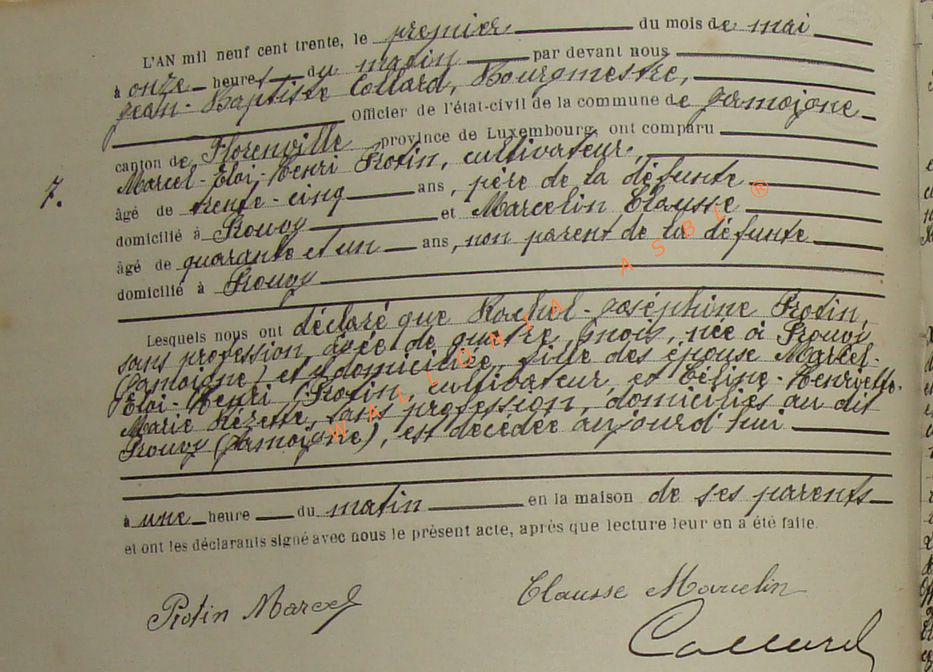 L'AN mil neuf cent trente, le premier du mois de mai
à onze heures du matin par devant nous
Jean-Baptiste Collard, Bourgmestre,
Officier de l'état-civil de la commune de Jamoigne
canton de Florenville province de Luxembourg, ont comparu
Marcel-Eloi-Henri Protin, cultivateur,
7.
âgé de trente-cinq ans, père de la défunte
domicilié à Prouvy et Marcelin Clausse
âgé de quarante et un ans, non parent de la défunte
domicilié à Prouvy
Lesquels nous ont déclaré que Rachel-Joséphine Protin,
sans profession, âgée de quatre mois, née à Prouvy
(Jamoigne) et y domiciliée, fille des époux Marcel-
Eloi-Henri Protin, cultivateur et Céline-Henriette-
Marie sans profession, domiciliés au dit
Prouvy (Jamoigne), est décédée aujourd'hui
à une heure du matin en la maison de ses parents
et ont les déclarants signé avec nous le présent acte, après que lecture leur en a été faite.
Protin Marcel
Clausse Marcelin
Collard
WALLONIA ASBL ®